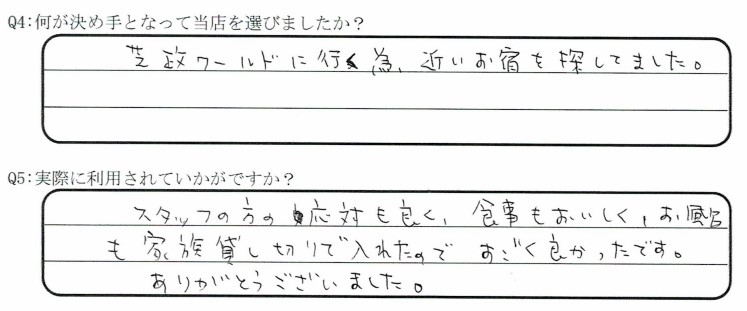 Q4:何が決め手となって当店を選びましたか？
芝政ワールドに行く為、近いお宿を探してました。
Q5:実際に利用されていかがですか？
スタッフの方の応対も良く、食事もおいしく、お風呂
も家族貸し切りで入れたのですごく良かったです。
ありがとうございました。